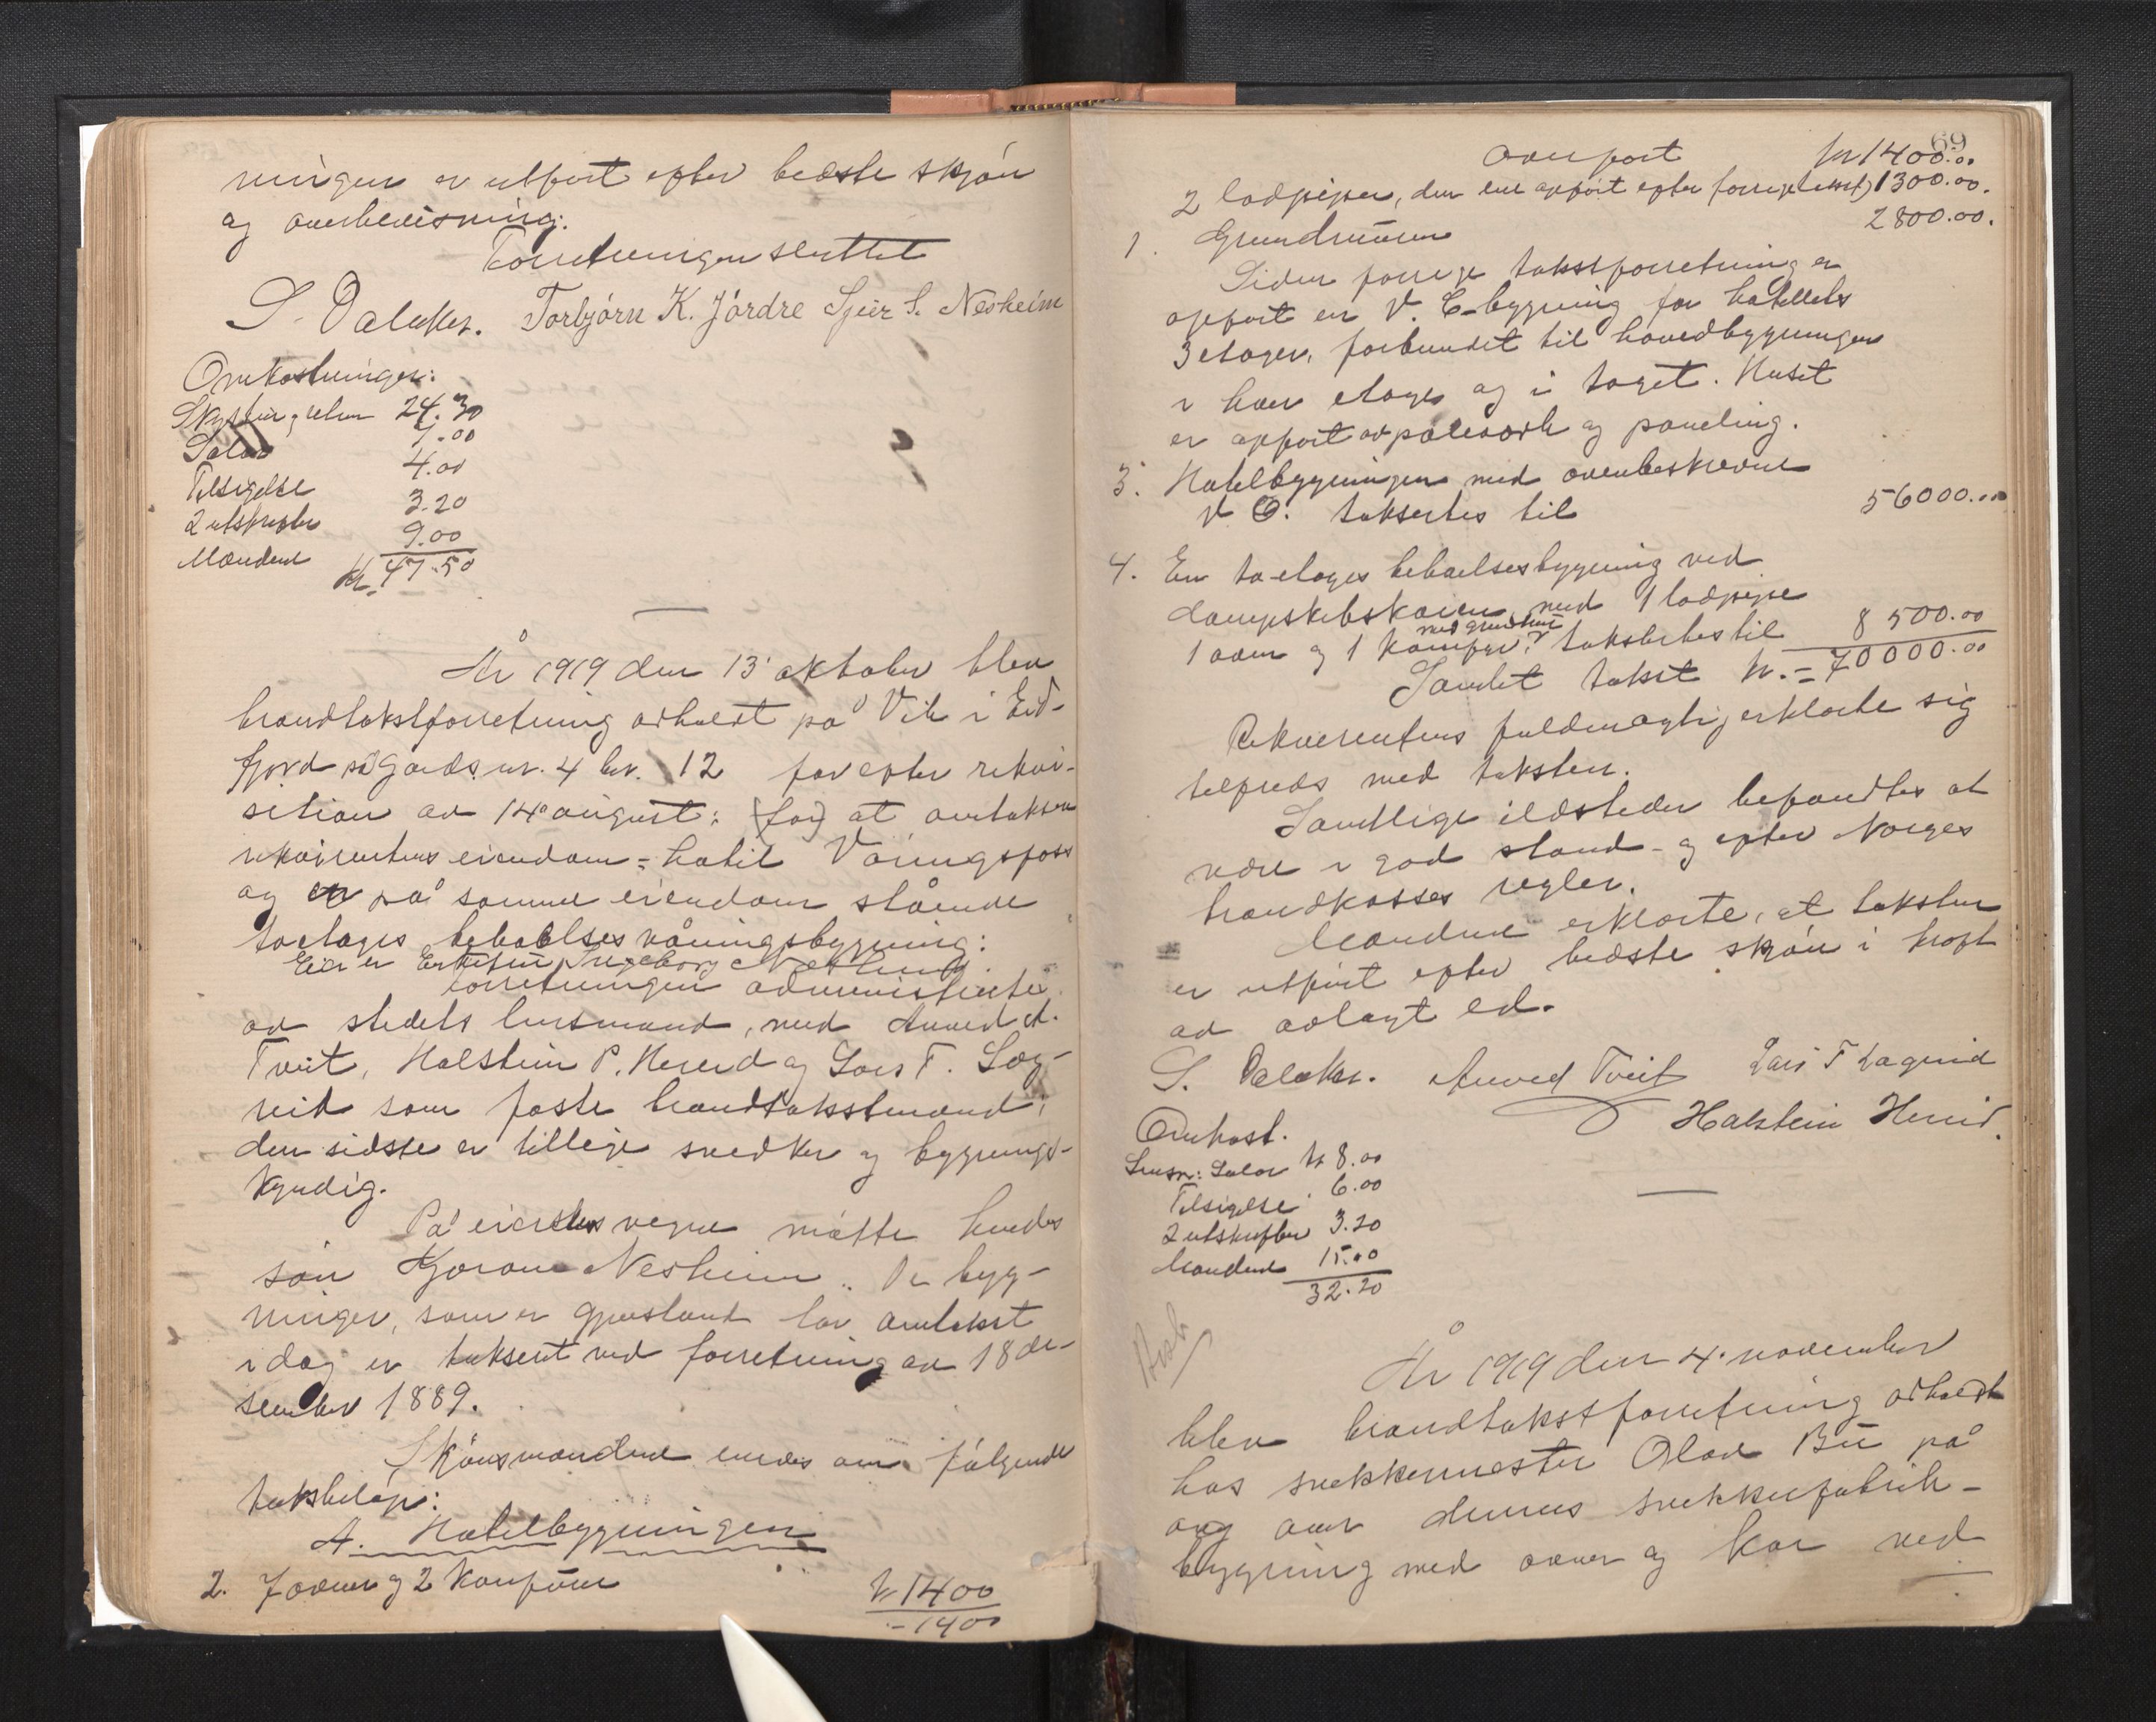 ningen er utført efter bedste skjøn
og overbevisning.
Forretningen sluttet
S. Dalaker. Torbjørn K. Jördre Sjur S. Nesheim
Omkostninger:
24.30
Salær 7.00
Tilsigelse 4.00
2 utskrifter 3.20
Mændene 9.00
Kr. 47.50
År 1919 den 13 oktober blev
brandtakstforretning avholdt på Vik i Eid-
fjord på Gards nr. 4 br. 12 for efter rekvi-
sition av 14 august: (for) at omtaksere
rekvirentens eiendom = hotel Vøringsfoss
og en på samme eiendom stående
toetages beboelses våningsbygning:
Eier er Enkefru Ingeborg Nesheim.
Forretningen administrertes
av stedets lensmand, med Anved A.
Tveit, Halstein P. Hereid og Lars T. Læg-
reid som faste brandtakstmænd;
den sidste er tillige snedker og bygnings-
kyndig.
På eierens vegne møtte hendes
søn Gjøran Nesheim. De byg-
ninger, som er gjenstand for omtakst
idag er taksert ved forretning av 18 de-
sember 1889.
Skjönsmændene enedes om følgende
takstbeløp:
A. Hotelbygningen
2. 7 ovner og 2 komfurer kr 1400
- 1400
69
Overført kr 1400.00
2 lodpiper, den ene opført efter forrige takst) 1300.00.
1. Grundmuren 2800.00.
Siden forrige takstforretning er
opført en V. C-bygning for hotellets
3 etager, forbundet til hovedbygningen
i hver etage og i taget. Huset
er opført av påleverk og paneling.
3. Hotelbygningen med ovenbeskrevne
V C. taksertes til 56000.00
4. En to-etages beboelsesbygning ved
dampskibskaien, med 1 lodpipe
med grundmur
1 ovn og 1 komfyr taksertes til 8 500.00
Samlet takst kr. = 70000.00
Rekvirentens fuldmægtig erklærte sig
tilfreds med taksten.
Samtlige ildsteder befandtes at
være i god stand - og efter Norges
brandkasses regler.
Mændene erklærte, at taksten
er utført efter bedste skjøn i kraft
av avlagt ed.
S. Dalaker. Anved Tveit Lars T Lægreid
Halstein Hereid.
Omkost.
Lensm: Salær kr 8.00
Tilsigelse 6.00
2 utskrifter 3.20
Mændene 15.00
32.20
År 1919 den 4. november
blev brandtakstforretning avholdt
hos snekkermester Olav Bu på
og over dennes snekkerfabrik-
bygning med ovner og kar ved